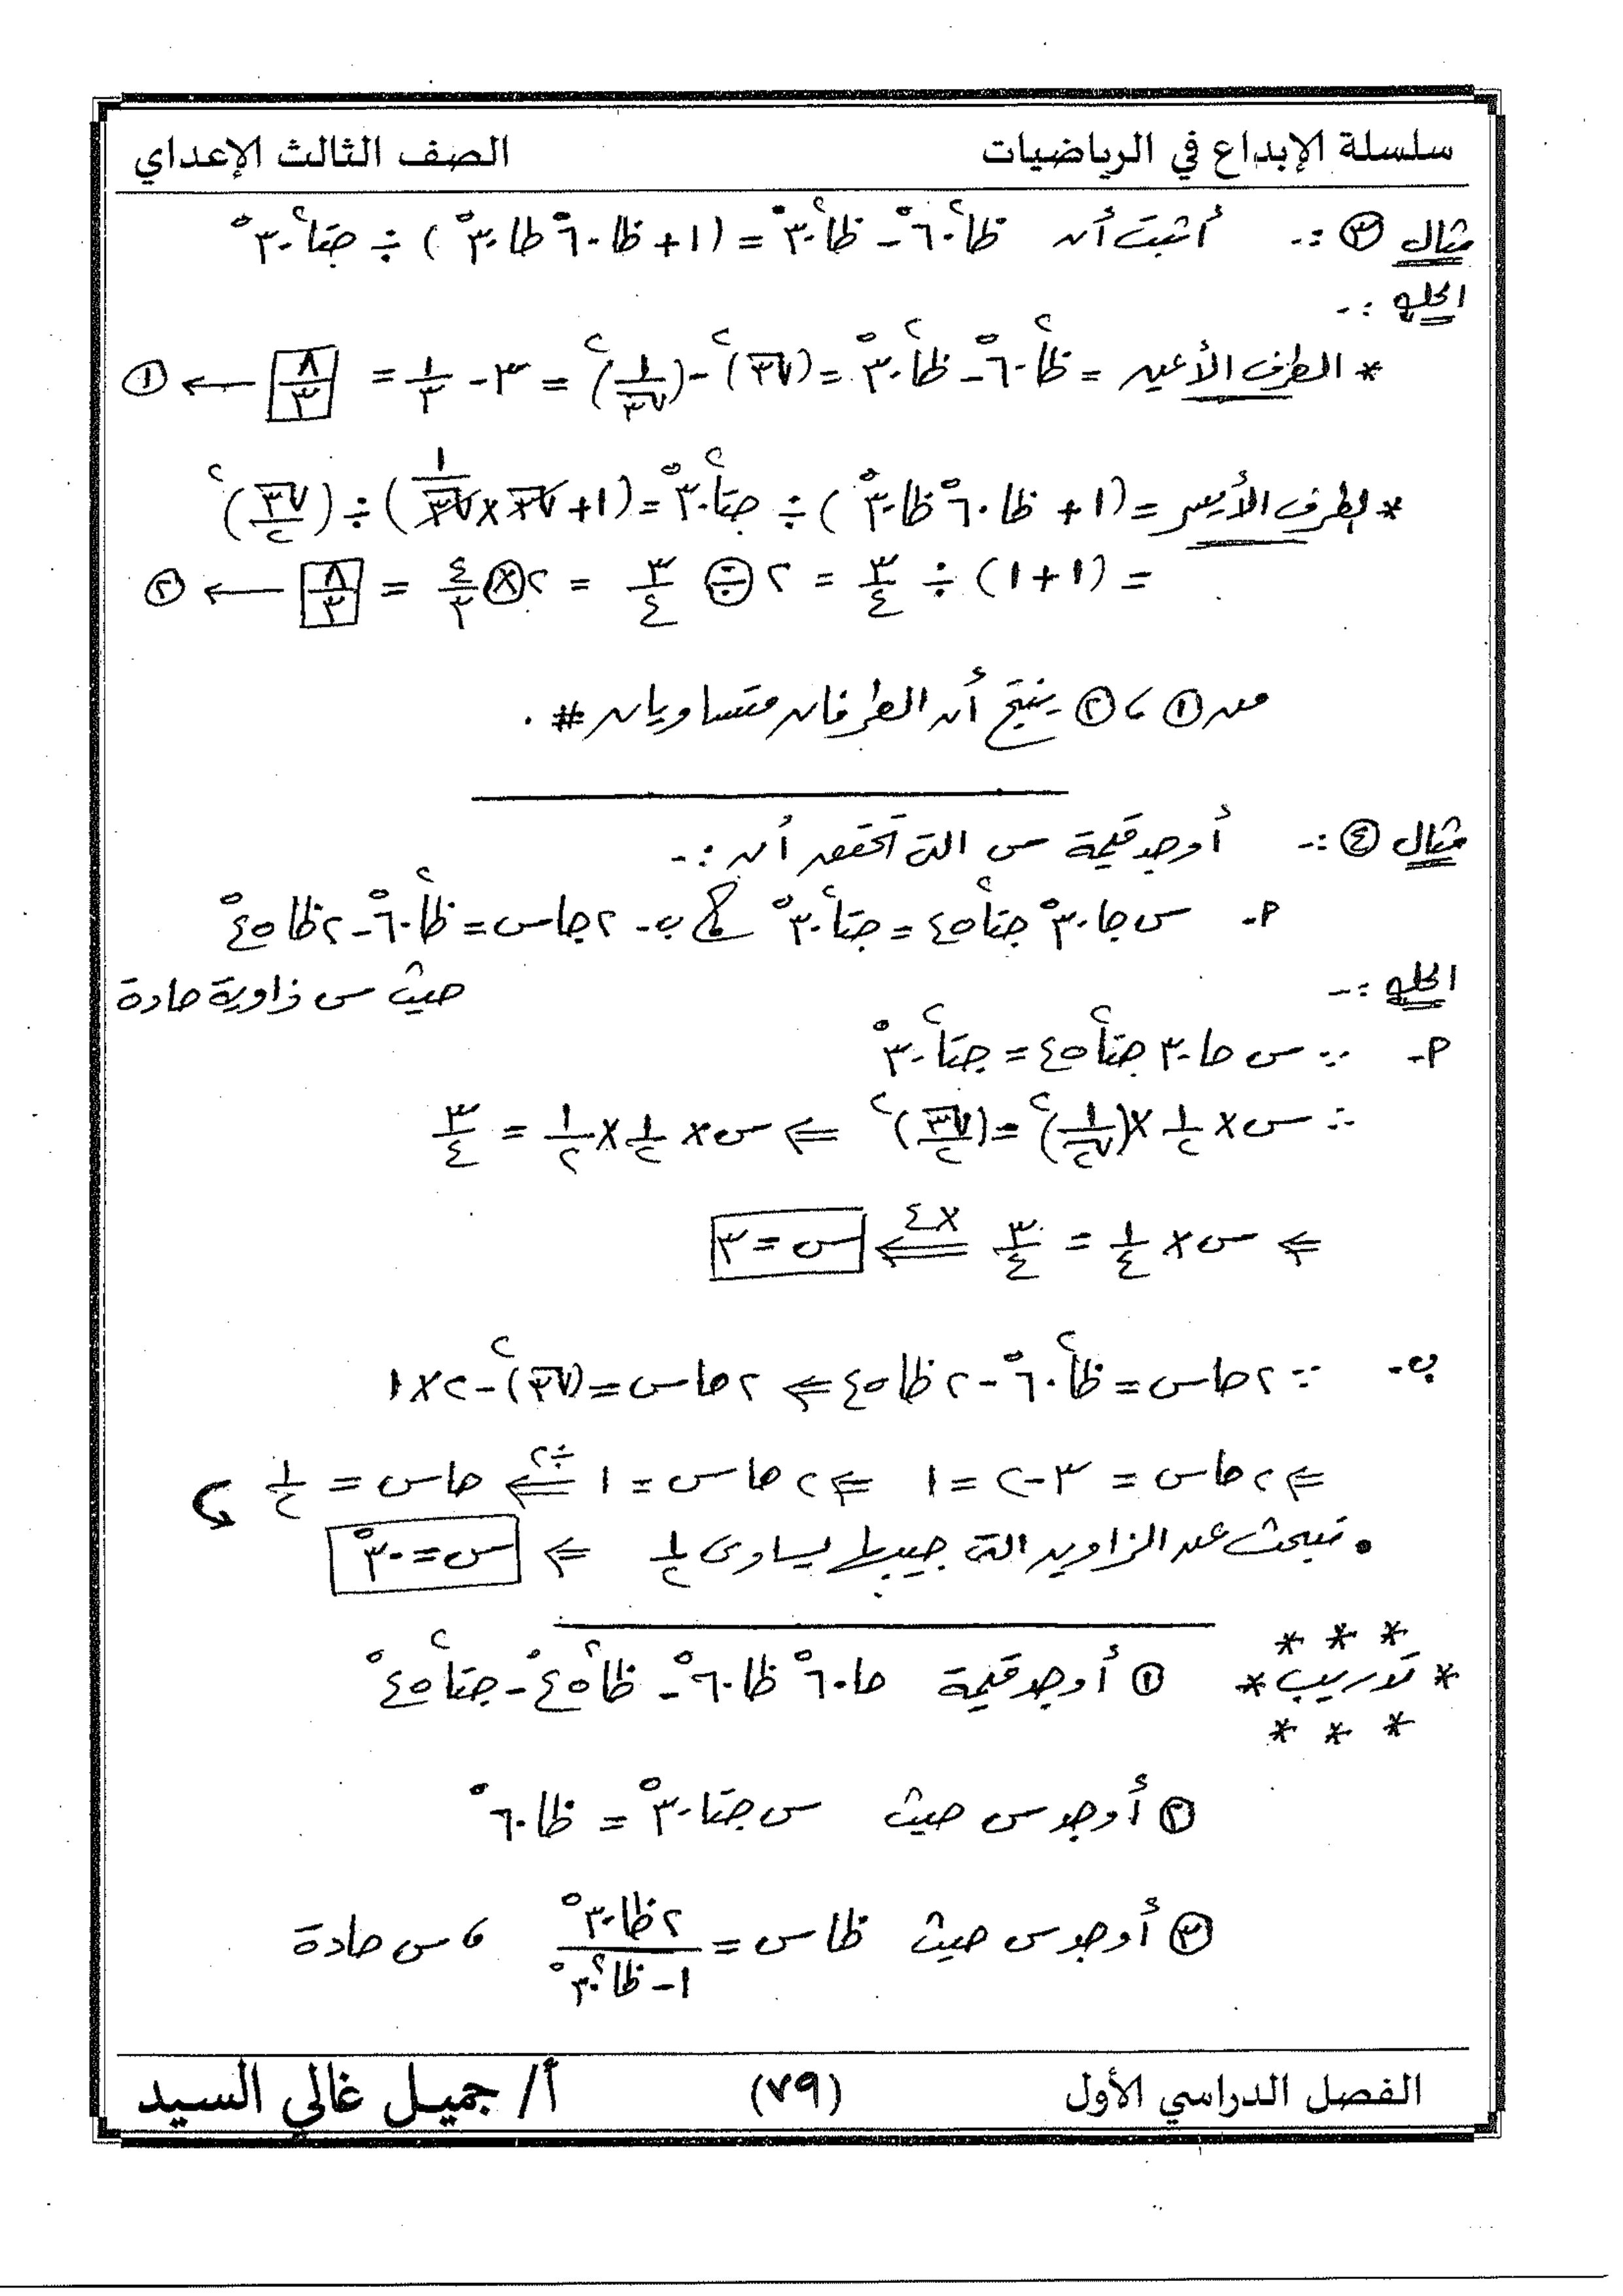 سلسلة الإبداع في الرياضيات الصف الثالث الإعداي
مثال (٣) :- أثبت أن ظا٢ ٦٠° - ظا٢ ٣٠° = (١ + ظا ٦٠° ظا ٣٠°) ÷ جتا٢ ٣٠°
الحل :-
* الطرف الأيمن = ظا٢ ٦٠° - ظا٢ ٣٠° = (√٣)٢ - (١/√٣)٢ = ٣ - ١/٣ = ٨/٣ ← (١)
* الطرف الأيسر = (١ + ظا ٦٠° ظا ٣٠°) ÷ جتا٢ ٣٠° = (١ + √٣ × ١/√٣) ÷ (√٣/٢)٢
= (١+١) ÷ ٣/٤ = ٢ ÷ ٣/٤ = ٢ × ٤/٣ = ٨/٣ ← (٢)
من (١) ، (٢) ينتج أن الطرفان متساويان # .
مثال (٤) :- أوجد قيمة س التى تحقق أن :-
٢- س جا ٣٠° جتا٢ ٤٥ = جتا٢ ٣٠° ؟ ب- ٢ جا س = ظا٢ ٦٠° - ٢ ظا ٤٥°
حيث س زاوية حادة
الحل :-
٢- ∵ س حا ٣٠ جتا٢ ٤٥ = جتا٢ ٣٠°
∴ س × ١/٢ × (١/√٢)٢ = (√٣/٢)٢ ⇐ س × ١/٢ × ١/٢ = ٣/٤
⇐ س × ١/٤ = ٣/٤ ⇐ ×٤ س = ٣
ب- ∵ ٢ حا س = ظا٢ ٦٠° - ٢ ظا ٤٥ ⇐ ٢ حا س = (√٣)٢ - ٢ × ١
⇐ ٢ حا س = ٣ - ٢ = ١ ⇐ ٢ حا س = ١ ⇐ ÷٢ حا س = ١/٢
• نبحث عن الزاوية التى جيبها يساوى ١/٢ ⇐ س = ٣٠°
* * *
* تدريب * (١) أوجد قيمة حا ٦٠° ظا ٦٠° - ظا٢ ٤٥° - جتا٢ ٤٥°
* * *
(٢) أوجد س حيث س جتا ٣٠° = ظا ٦٠°
(٣) أوجد س حيث ظا س = ٢ ظا ٣٠° / ١ - ظا٢ ٣٠° ، س حادة
الفصل الدراسي الأول (٧٩) أ/ جميل غالي السيد